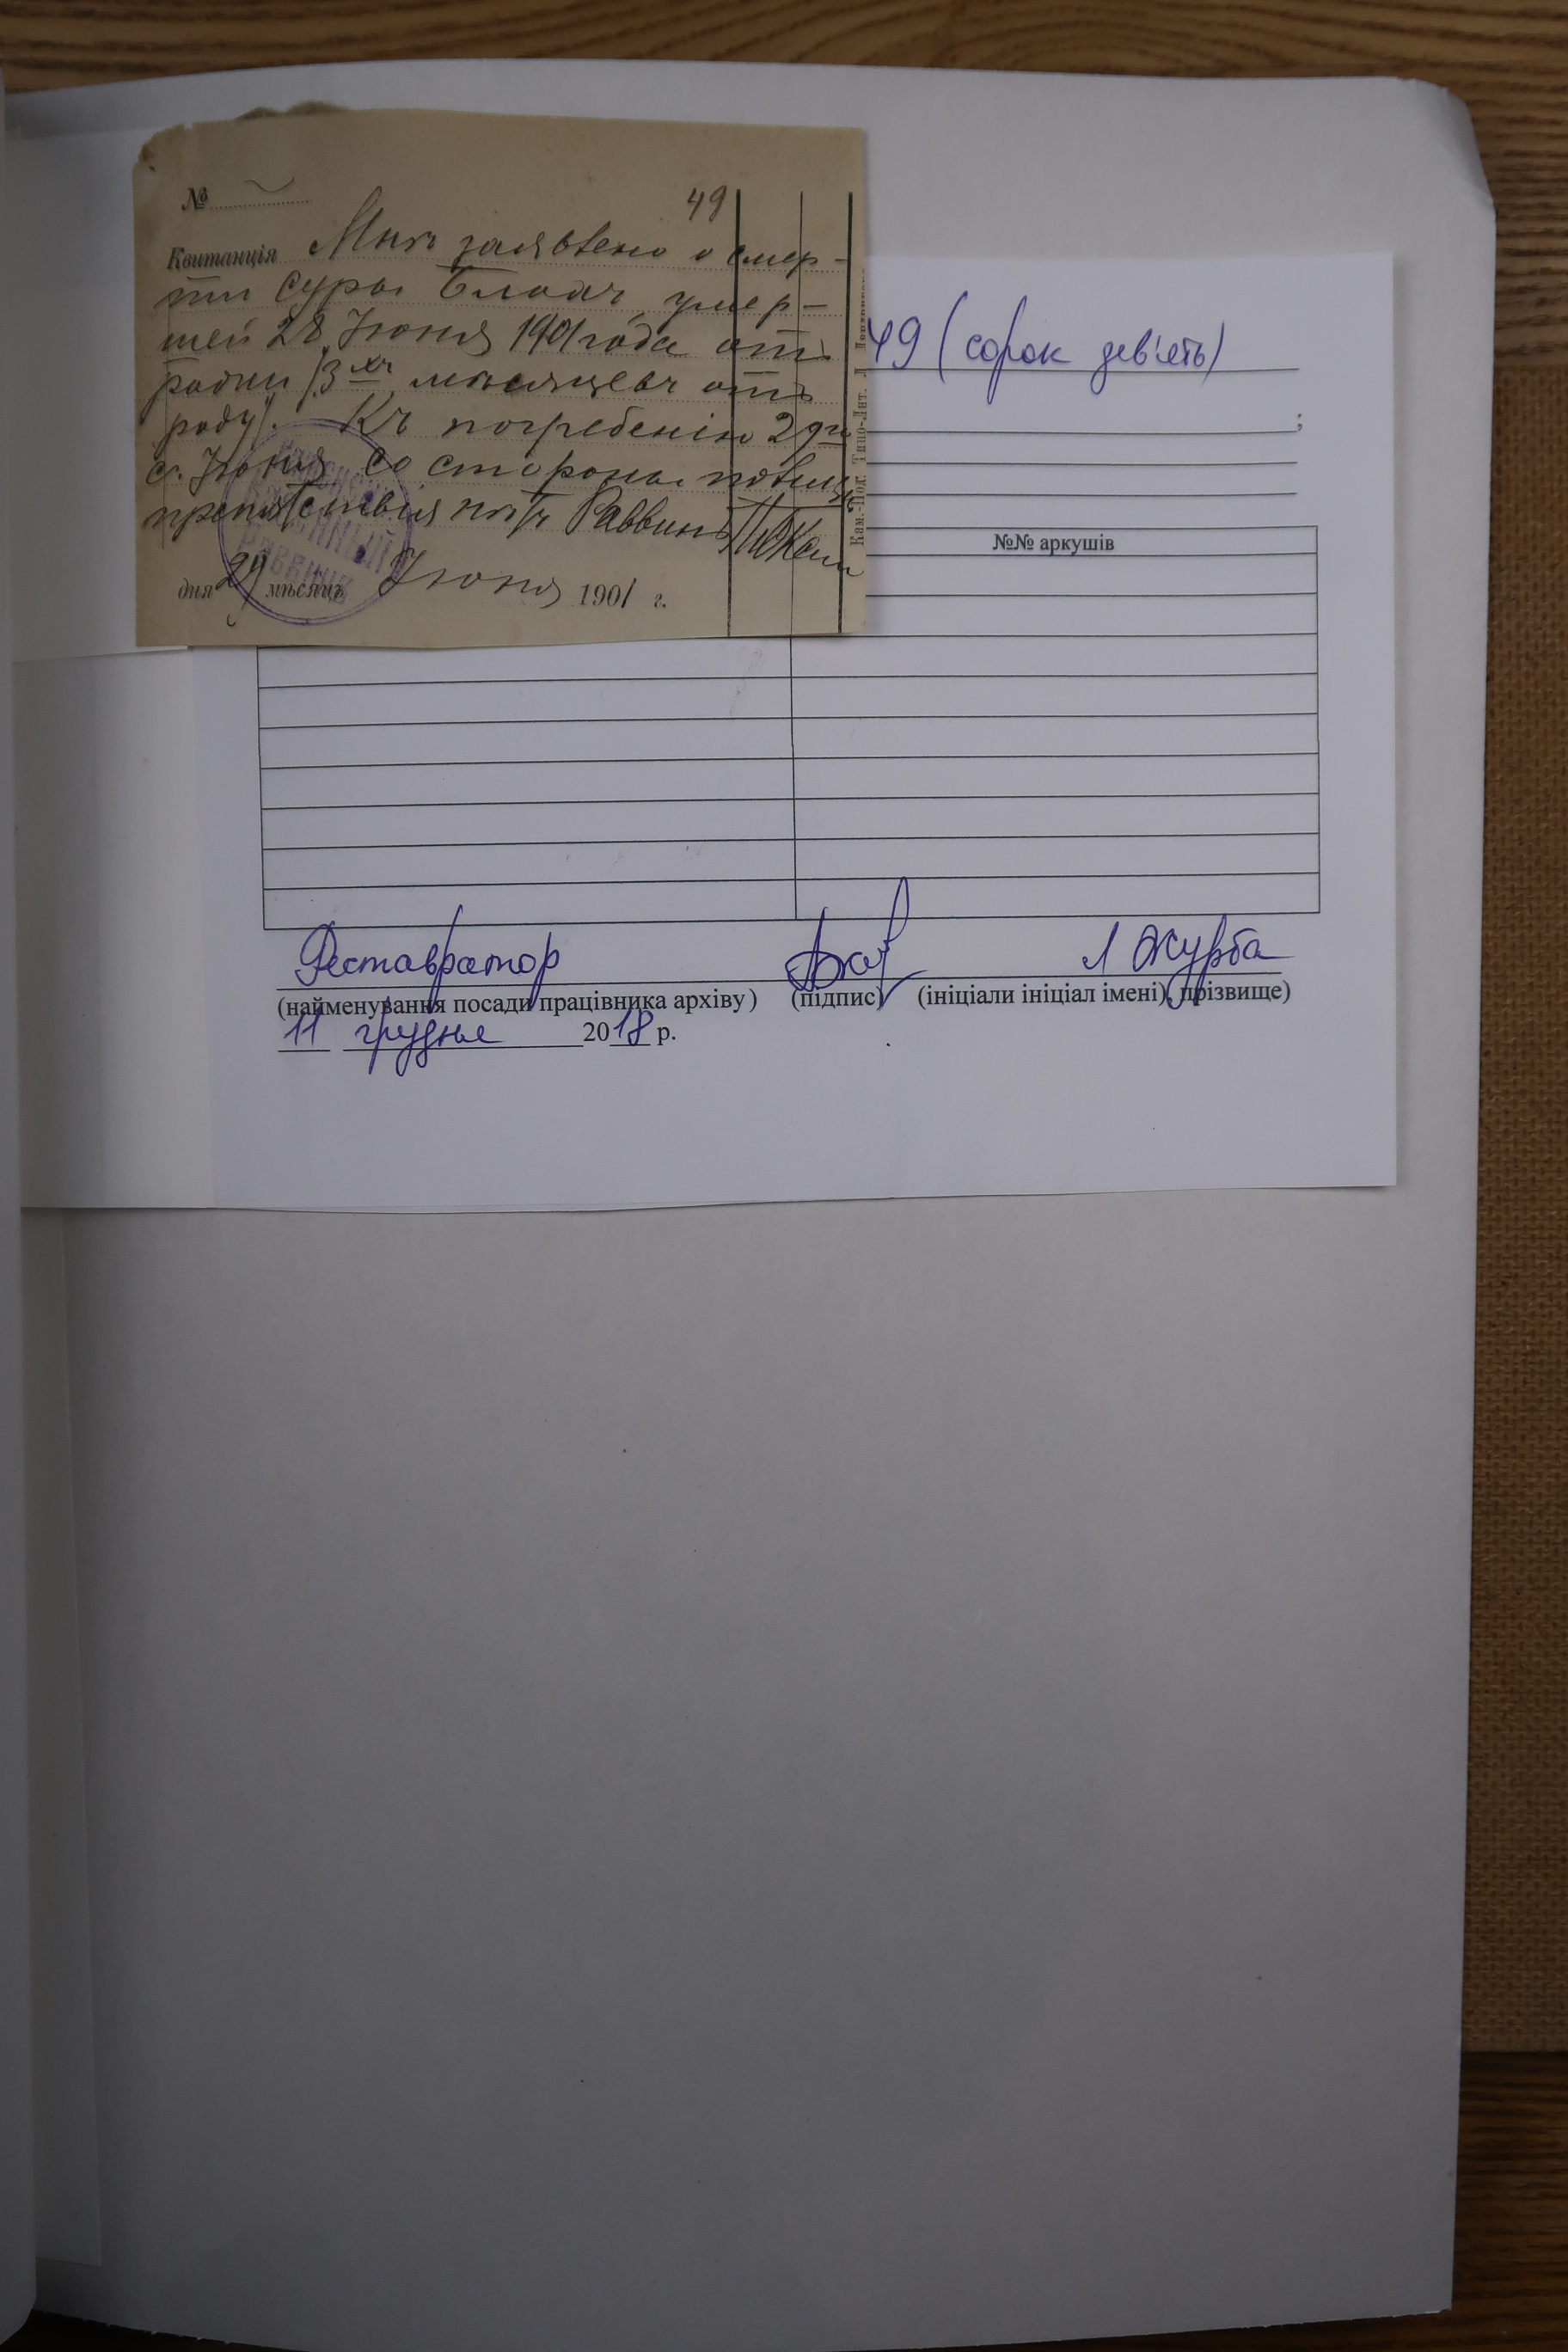 №
49
Квитанція Мнѣ заявлено о смер-
ти Суры Блохъ, умер-
шей 28 Іюня 1901 года отъ
родни (3хъ мѣсяцевъ отъ
роду). Къ погребенію 29го
с. Іюня со стороны
препятствія нѣтъ Раввинъ
дня 29 мѣсяцъ Іюня 1901 г.
Казенный
Раввинъ
Кам.-Под. Типо-Лит.
49 (сорок дев'ять)
;
№№ аркушів
Реставратор Л Журба
(найменування посади працівника архіву) (підпис) (ініціали ініціал імені), прізвище)
11 грудня 2018 р.